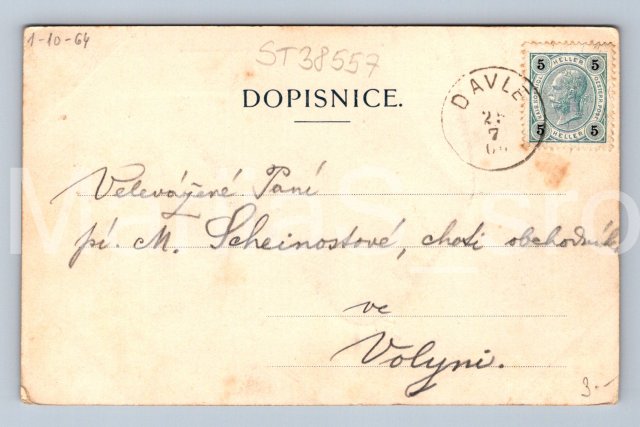 1-10-64
ST38557
DOPISNICE.
DAVLE
7
5 HELLER 5
5 HELLER 5
Velevážené Paní
pí. M. Scheinostové, choti obchodníka
ve
Volyni.
3.-